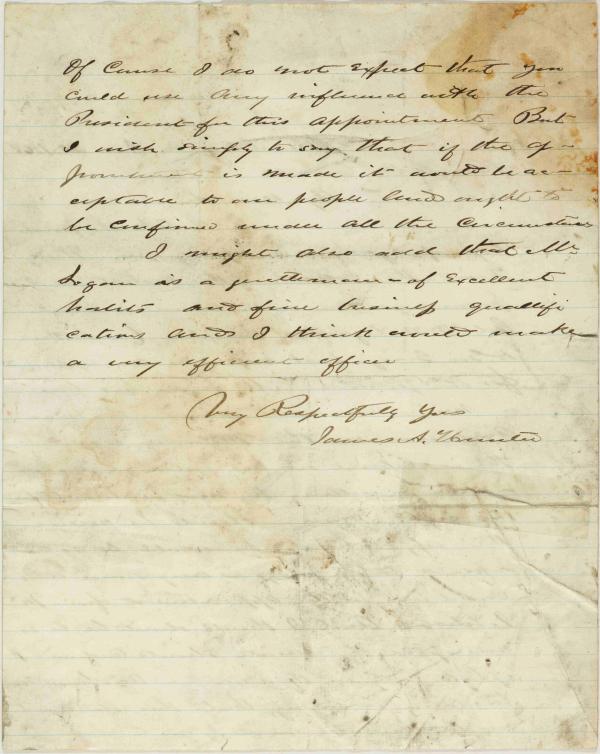 Of Cause I do not expect that you
could use any influence with the
President for this appointment But
I wish simply to say that if the ap-
pointment is made it would be ac-
ceptable to our people and ought to
be confirmed under all the circumstances
I might also add that Mr
Logan is a gentleman of excellent
habits and fine business quallifi
cations and I think would make
a very efficient officer
Very Respectfully Yrs
James A. Hunter